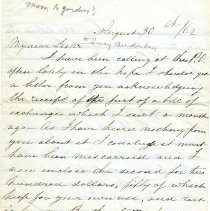 from A. Gordon
August 30th /62
My dear Sister
I have been calling at the P.O.
often lately in the hope I should get
a letter from you acknowledging
the receipt of the first of a bill of
exchange which I sent a month
ago. As I have heard nothing from
you about it I conclude it must
have been miscarried and I
now enclose the second for two
hundred dollars, fifty of which
keep for your own use, and